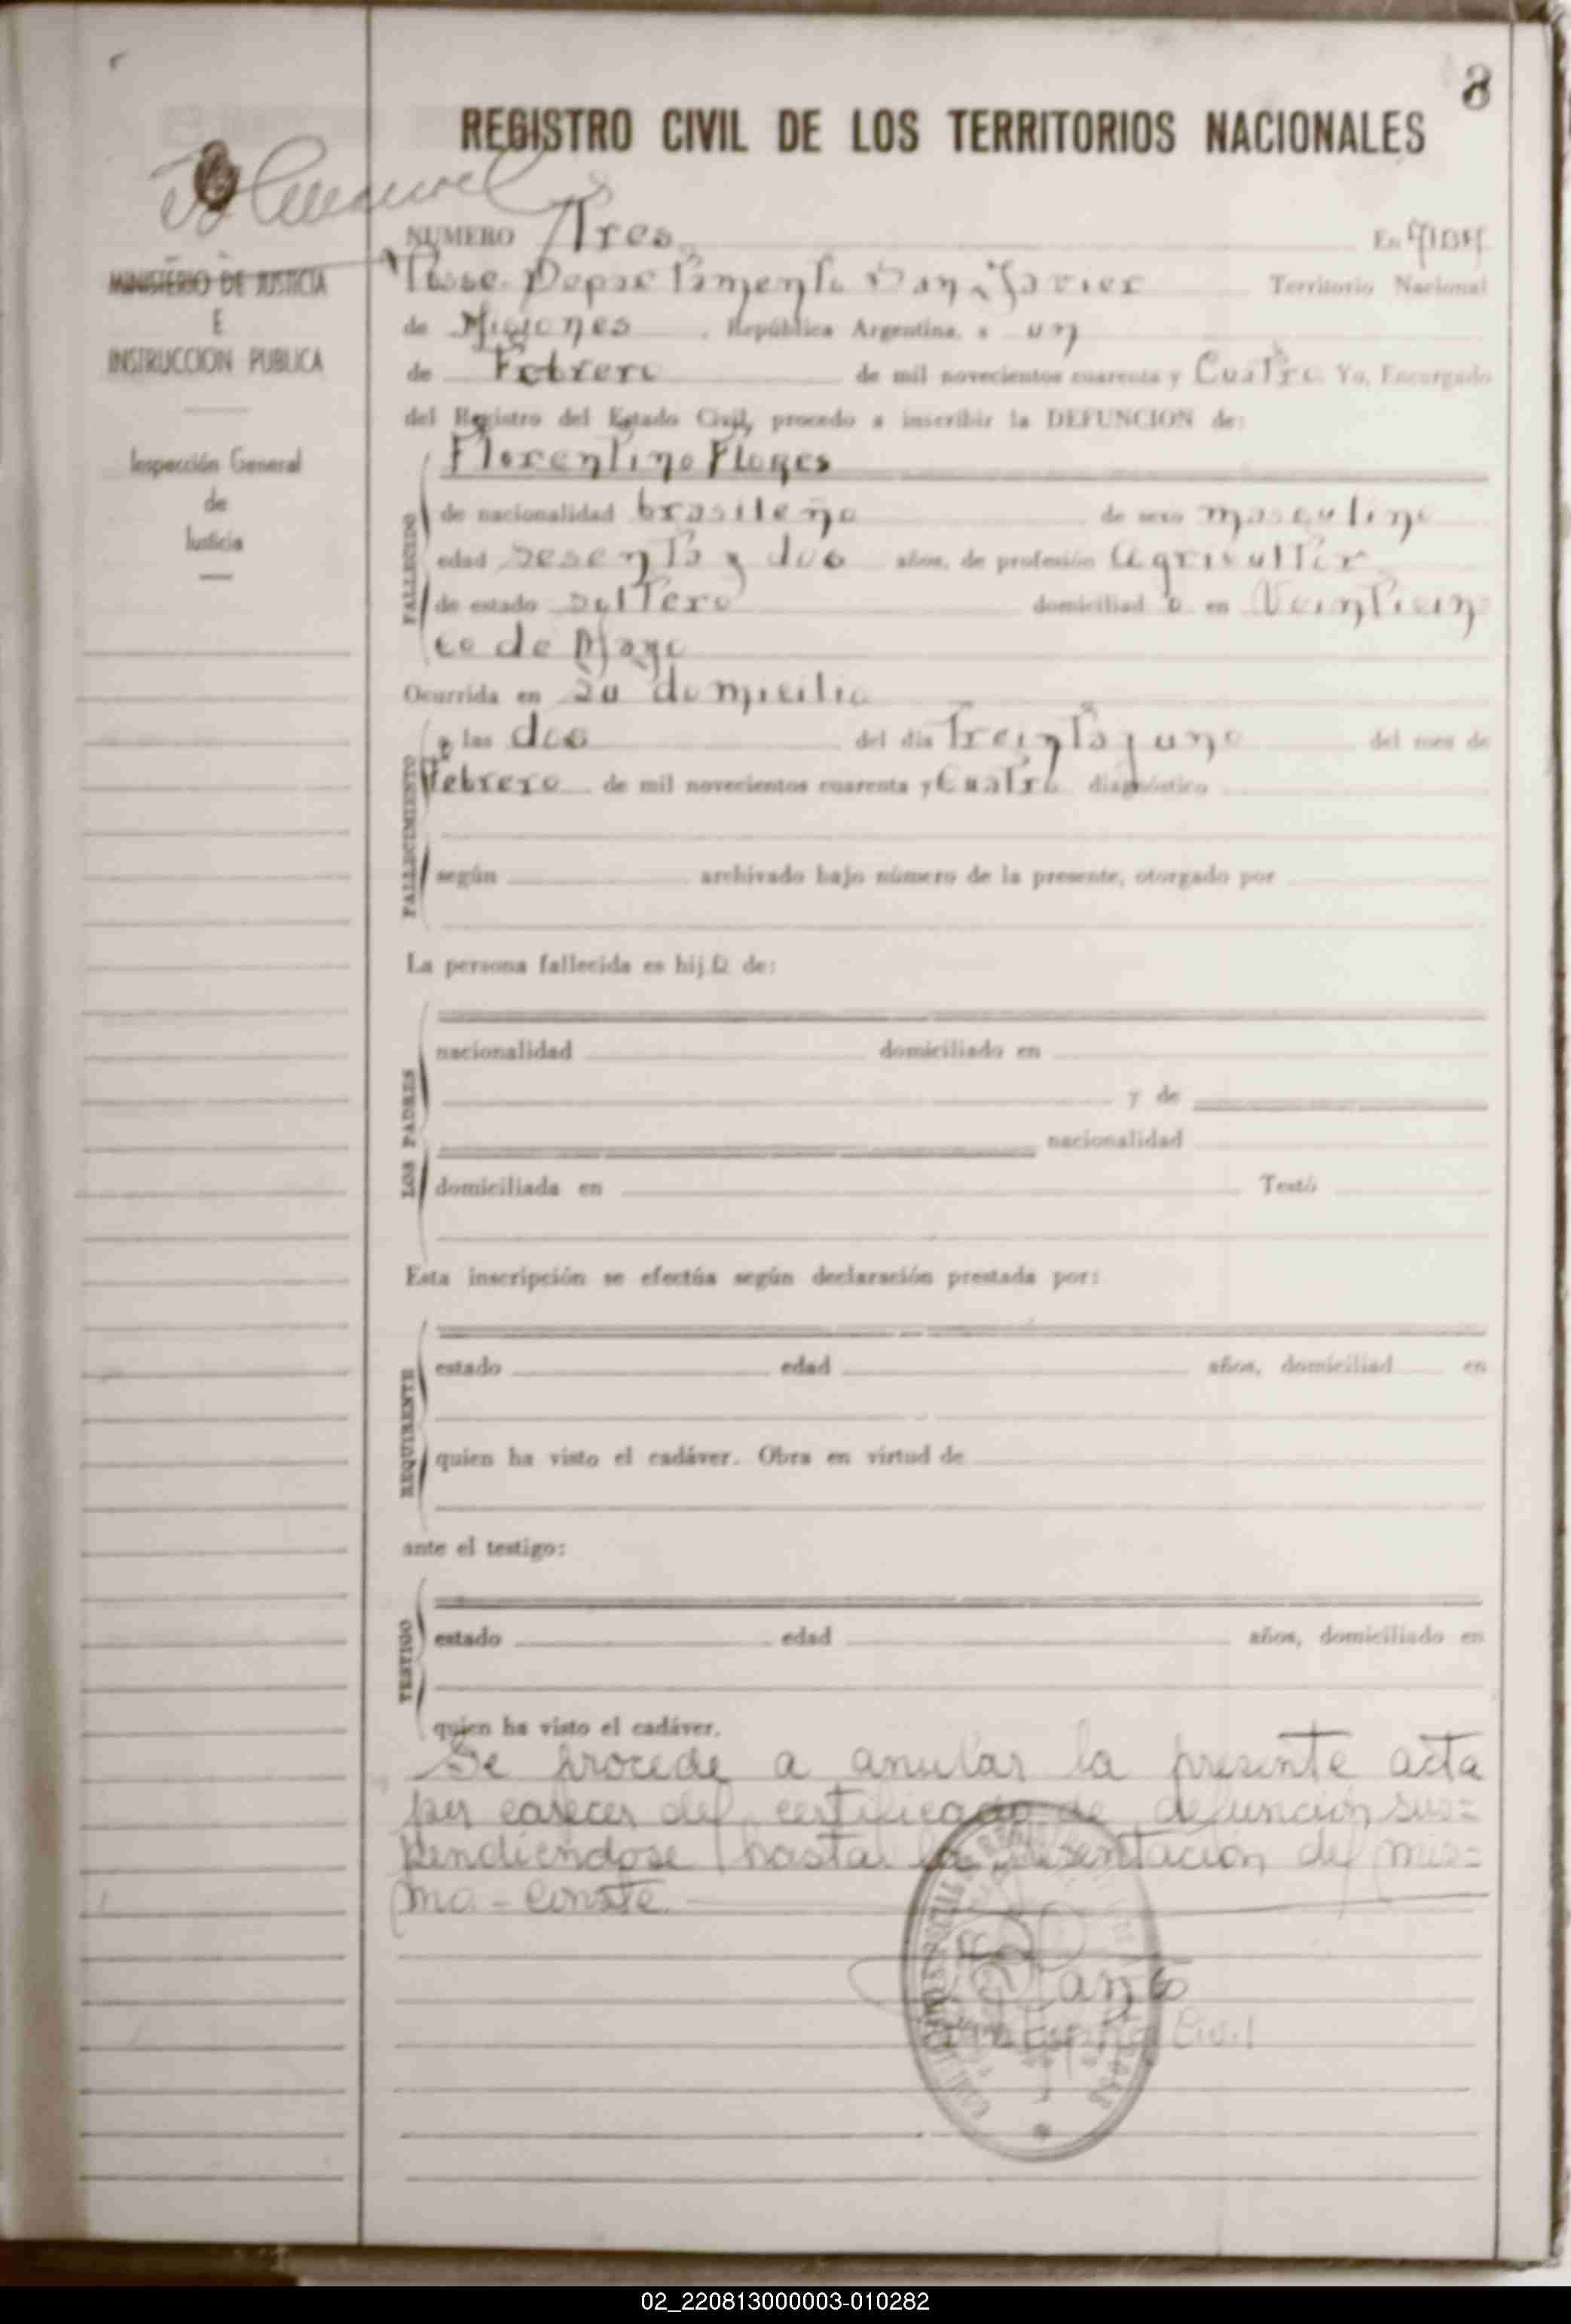 8
REGISTRO CIVIL DE LOS TERRITORIOS NACIONALES
NUMERO Tres En
MINISTERIO DE JUSTICIA
E
INSTRUCCION PUBLICA
Inspección General
de
Justicia
Posse. Departamento San Javier Territorio Nacional
de Misiones, República Argentina, a un
de Febrero de mil novecientos cuarenta y Cuatro Yo, Encargado
del Registro del Estado Civil, procedo a inscribir la DEFUNCION de:
FALLECIDO
Florentino Flores
de nacionalidad brasileña de sexo masculino
edad sesenta y dos años, de profesión agricultor
de estado soltero domiciliad o en Veinticin
co de Mayo
Ocurrida en su domicilio
FALLECIMIENTO
a las dos del día treinta y uno del mes de
Febrero de mil novecientos cuarenta y Cuatro diagnóstico
según archivado bajo número de la presente, otorgado por
La persona fallecida es hij.o de:
LOS PADRES
nacionalidad domiciliado en
y de
nacionalidad
domiciliada en Testó
Esta inscripción se efectúa según declaración prestada por:
REQUIRENTE
estado edad años, domiciliad en
quien ha visto el cadáver. Obra en virtud de
ante el testigo:
TESTIGO
estado edad años, domiciliado en
quien ha visto el cadáver.
Se procede a anular la presente acta
por carecer del certificado de defunción sus=
pendiéndose hasta la presentación del mis=
mo - Conste.
Civil
02_220813000003-010282